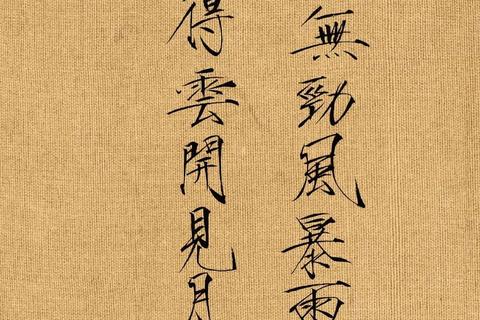 無勁風暴雨
得雲開見月